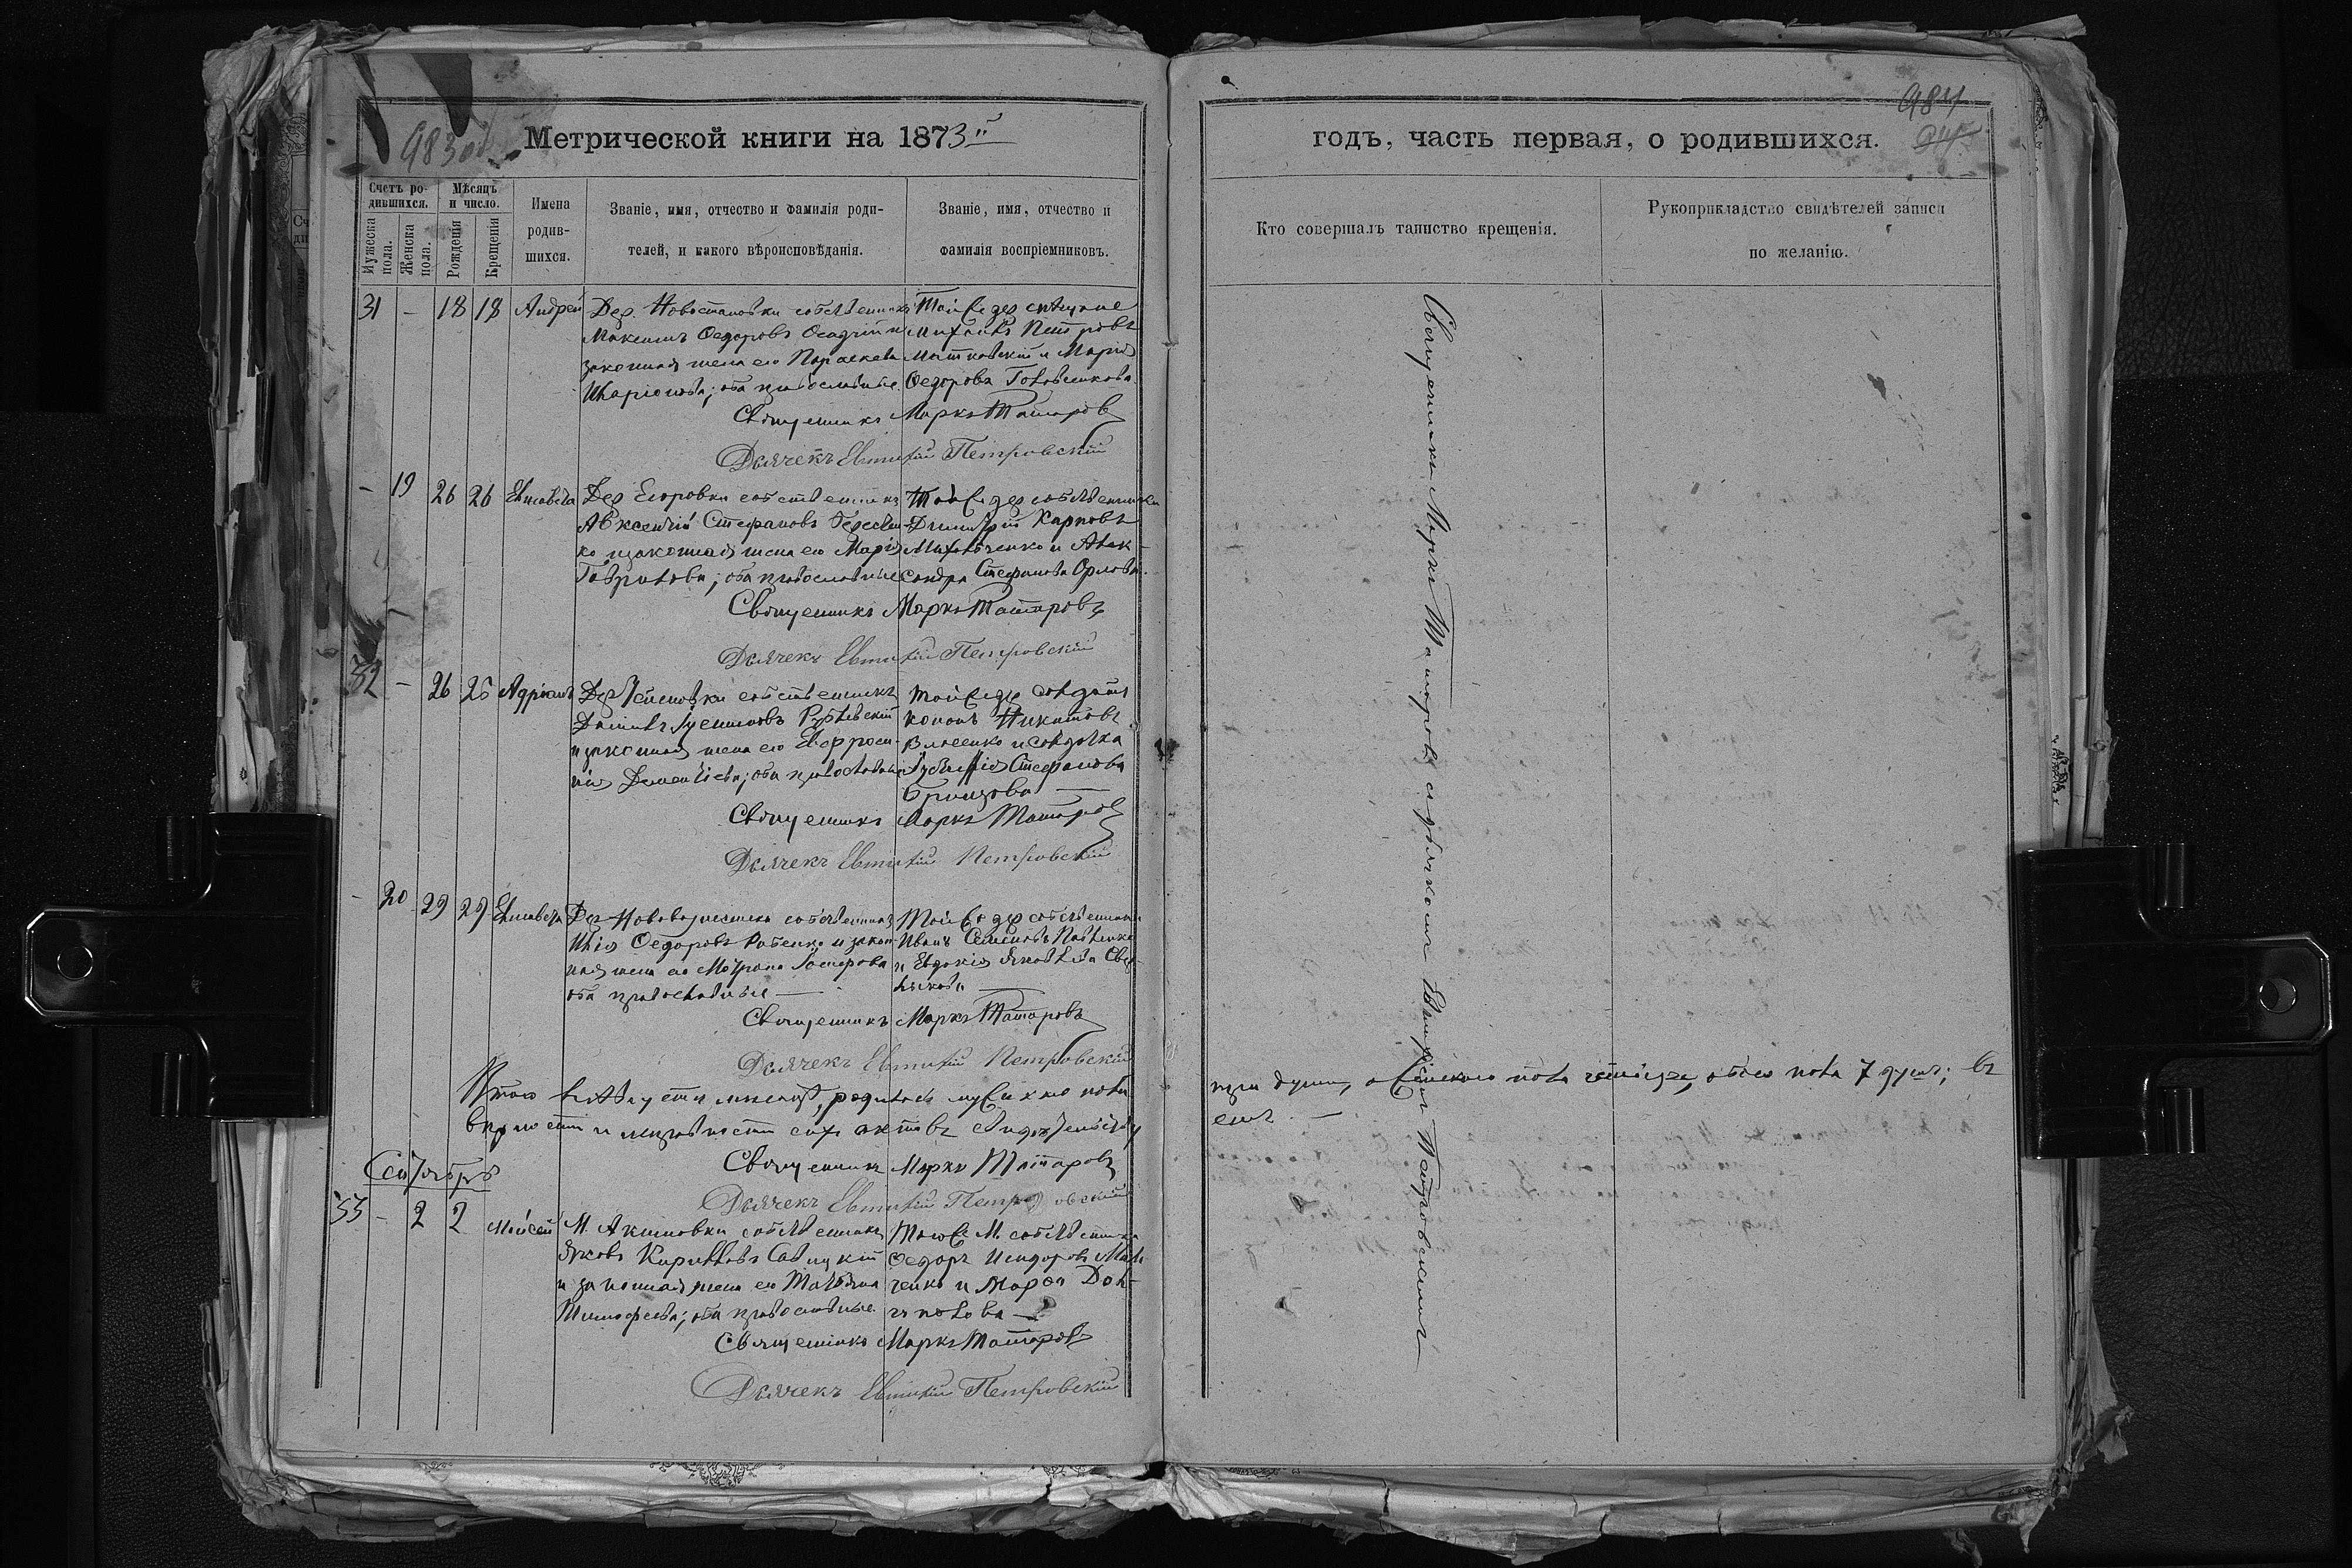 983 об
Метрической книги на 1873й
Счетъ ро-
дившихся.
Мѣсяцъ
и число.
Мужеска
пола.
Женска
пола.
Рожденія
Крещенія
Имена
родив-
шихся.
Званіе, имя, отчество и фамилія роди-
телей, и какого вѣроисповѣданія.
Званіе, имя, отчество и
фамилія воспріемниковъ.
31 – 18 18 Андрей
Дер. Новостановки собственникъ
Максимъ Ѳедоровъ Осадчій и
законная жена его Параскева
Иларіонова; оба православные.
Той же дер
Михаилъ Петровъ
Матковскій и Марія
Ѳедорова Головченкова.
Священникъ Маркъ Татаровъ
Дьячекъ Евтихій Петровскій
– 19 26 26 Елисавета
Дер Егоровки собственникъ
Авксентій Стефановъ
ко и законная жена его Марія
Гаврилова; оба православные
Той же дер собственники
Димитрій Карповъ
Михальченко и Алек-
сандра Стефанова Орлова.
Священникъ Маркъ Татаровъ
Дьячекъ Евтихій Петровскій
32 – 26 26 Адріанъ
Дер собственникъ
Даніилъ
и законная жена его Евфроси-
нія Дементіева; оба православные
Той же дер солдатъ
Кононъ Никитовъ
Власенко и солдатка
Стефанова
Священникъ Маркъ Татаровъ
Дьячекъ Евтихій Петровскій
– 20 29 29 Елисавета
Дер собственникъ
Илія Ѳедоровъ и закон-
ная жена его Матрона
оба православные –
Той же дер собственники
Иванъ Семеновъ Павленко
и Евдокія Яковлева
Священникъ Маркъ Татаровъ
Дьячекъ Евтихій Петровскій
Итого въ Августѣ мѣсяцѣ, родилось мужеска пола
вѣрности и исправности сихъ актовъ свидѣтельству
Священникъ Маркъ Татаровъ
Дьячекъ Евтихій Петровскій
Сентябрь
33 – 2 2 Моисей
М. Акимовки собственникъ
Яковъ Кирилловъ Савицкій
и законная жена его Татіана
Тимофеева; оба православные.
Того же М. собственники
Ѳедоръ Исидоровъ
ченко и Марѳа
Священникъ Маркъ Татаровъ
Дьячекъ Евтихій Петровскій
984
годъ, часть первая, о родившихся.
Кто совершалъ таинство крещенія.
Рукоприкладство свидѣтелей записи
по желанію.
Священникъ Маркъ Татаровъ съ дьячкомъ Евтихіемъ Петровскимъ
три души, а женскаго пола четыре, обоего пола 7 душъ; въ
емъ. –